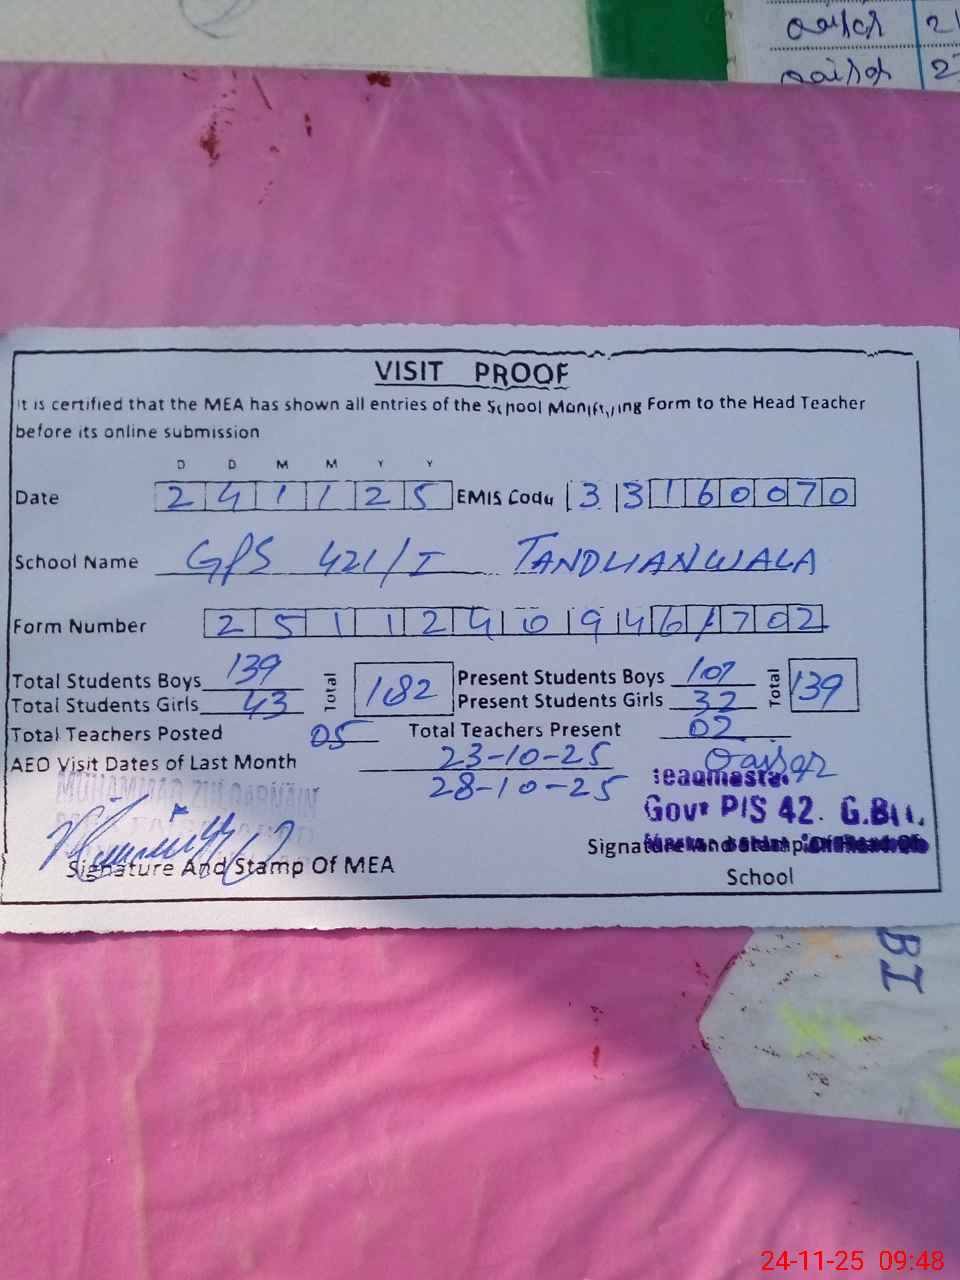 VISIT PROOF
It is certified that the MEA has shown all entries of the School Monitoring Form to the Head Teacher
before its online submission
D D M M Y Y
Date 2 4 1 1 2 5 EMIS Code 3 3 1 6 0 0 7 0
School Name GPS 421/I TANDLIANWALA
Form Number 2 5 1 1 2 4 0 9 4 6 1 7 0 2
Total Students Boys 139 Total 182 Present Students Boys 107 Total 139
Total Students Girls 43 Present Students Girls 32
Total Teachers Posted 05 Total Teachers Present 02
AEO Visit Dates of Last Month 23-10-25
28-10-25
MUHAMMAD ZULQARNAIN
Govt P/S 42. G.B
Signature And Stamp Of MEA
Signature And Stamp Of Head Of
School
BI
24-11-25 09:48